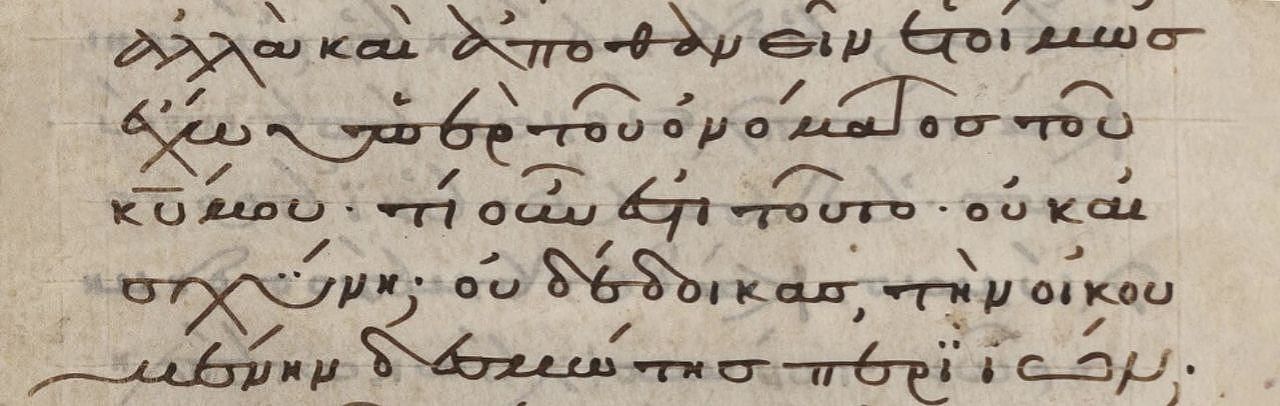 ἀλλὰ καὶ ἀποθανεῖν ἑτοίμως
ἔχω ὑπὲρ τοῦ ὀνόματος τοῦ
κ̅υ̅ μου· τί οὖν ἐστι τοῦτο· οὐκ αἰ
σχύνῃ; οὐ δέδοικας, τὴν οἰκου
μένην δεσμώτης περϊιών;